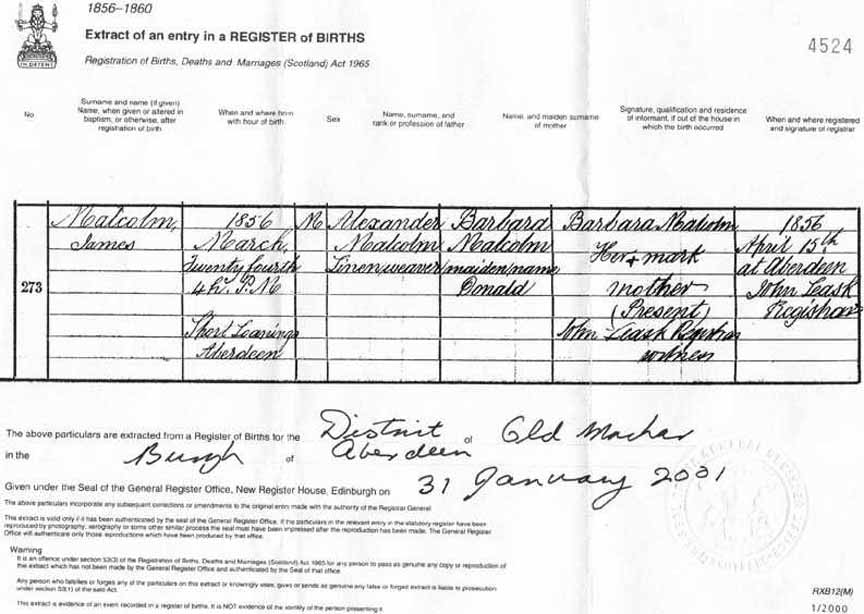 1856–1860
Extract of an entry in a REGISTER of BIRTHS
4524
Registration of Births, Deaths and Marriages (Scotland) Act 1965
No
Surname and name (if given)
Name, when given or altered in
baptism, or otherwise, after
registration of birth
When and where born
with hour of birth
Sex
Name, surname, and
rank or profession of father
Name, and maiden surname
of mother
Signature, qualification and residence
of informant, if out of the house in
which the birth occurred
When and where registered
and signature of registrar
273
Malcolm,
James
1856
March,
Twenty fourth
4 hr. P.M
Short Loanings
Aberdeen
M
Alexander
Malcolm
Linen weaver
Barbara
Malcolm
maiden name
Donald
Barbara Malcolm
Her + mark
mother
(Present)
John Leask Registrar
witness
1856
April 15th
at Aberdeen
John Leask
Registrar
The above particulars are extracted from a Register of Births for the District of Old Machar
in the Burgh of Aberdeen
Given under the Seal of the General Register Office, New Register House, Edinburgh on 31 January 2001
The above particulars incorporate any subsequent corrections or amendments to the original entry made with the authority of the Registrar General.
This extract is valid only if it has been authenticated by the seal of the General Register Office. If the particulars in the relevant entry in the statutory register have been
reproduced by photography, xerography or some other similar process the seal must have been impressed after the reproduction has been made. The General Register
Office will authenticate only those reproductions which have been produced by that office.
Warning
It is an offence under section 53(3) of the Registration of Births, Deaths and Marriages (Scotland) Act 1965 for any person to pass as genuine any copy or reproduction of
the extract which has not been made by the General Register Office and authenticated by the Seal of that office.
Any person who falsifies or forges any of the particulars on this extract or knowingly uses, gives or sends as genuine any false or forged extract is liable to prosecution
under section 53(1) of the said Act.
This extract is evidence of an event recorded in a register of births. It is NOT evidence of the identity of the person presenting it.
RXB12(M)
1/2000